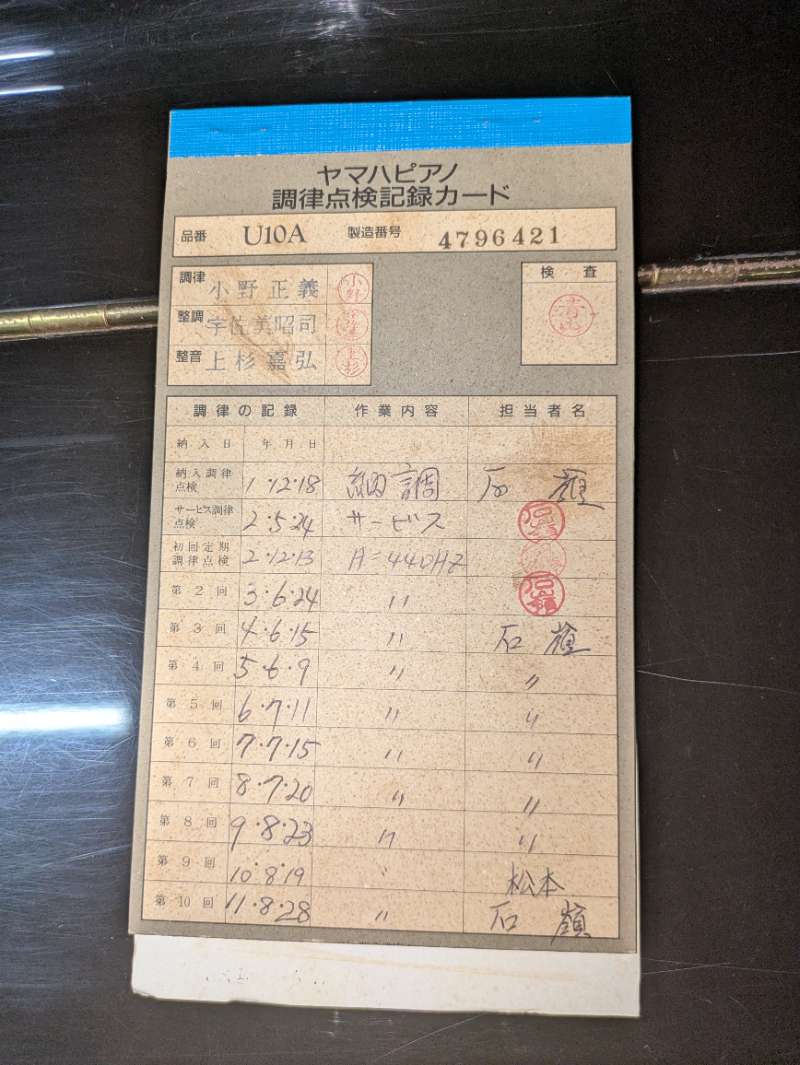 ヤマハピアノ
調律点検記録カード
品番 U10A 製造番号 4796421
調律 小野正義 小野
検査
整調 宇佐美昭司
整音 上杉嘉弘 上杉
調律の記録 作業内容 担当者名
納入日 年月日
納入調律点検 1・12・18 納調 石嶺
サービス調律点検 2・5・24 サービス 石嶺
初回定期調律点検 2・12・13 A=440HZ
第2回 3・6・24 〃 石嶺
第3回 4・6・15 〃 石嶺
第4回 5・6・9 〃 〃
第5回 6・7・11 〃 〃
第6回 7・7・15 〃 〃
第7回 8・7・20 〃 〃
第8回 9・8・23 〃 〃
第9回 10・8・19 〃 松本
第10回 11・8・28 〃 石嶺